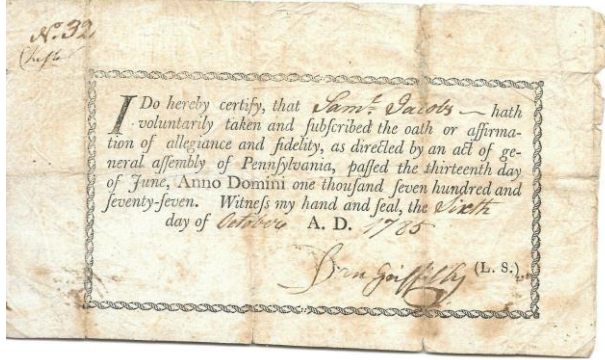 No. 32
I Do hereby certify, that Saml. Jacobs — hath
voluntarily taken and ſubſcribed the oath or affirma-
tion of allegiance and fidelity, as directed by an act of ge-
neral aſſembly of Pennſylvania, paſſed the thirteenth day
of June, Anno Domini one thouſand ſeven hundred and
ſeventy-ſeven. Witneſs my hand and ſeal, the Sixth
day of October A. D. 1785
Ben Griffith (L. S.)